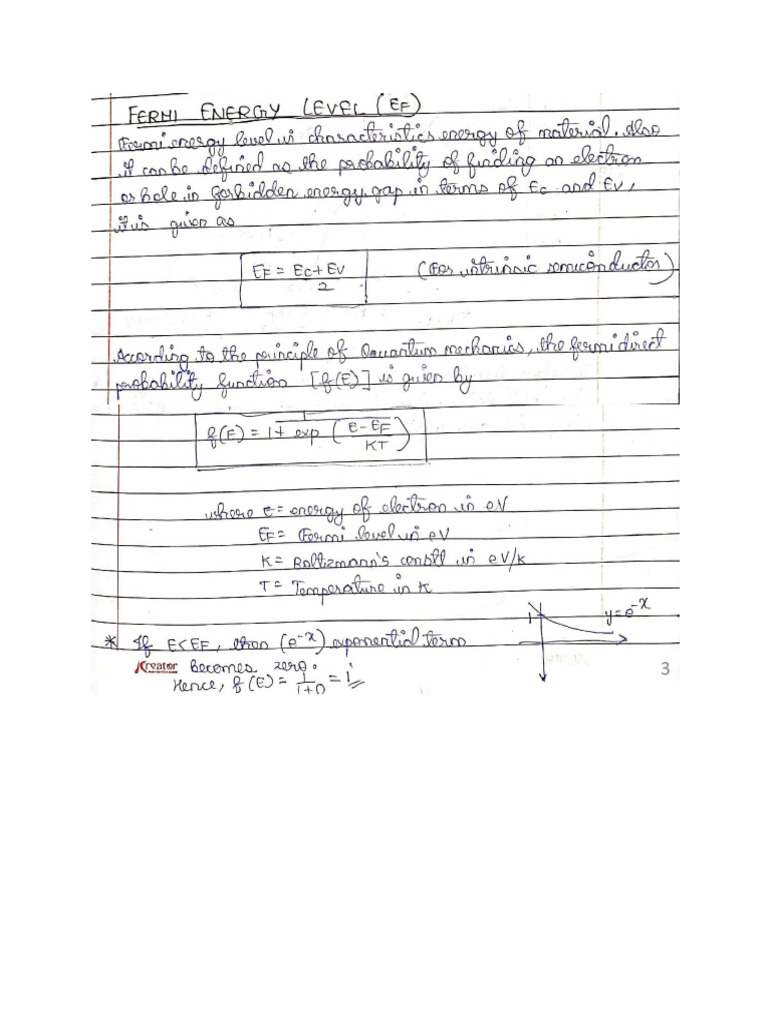 FERMI ENERGY LEVEL (EF)
Fermi energy level is characteristics energy of material. Also
it can be defined as the probability of finding an electron
or hole in forbidden energy gap in terms of Ec and Ev,
it is given as
EF = Ec + Ev / 2 (For intrinsic semiconductor)
According to the principle of Quantum mechanics, the fermi direct
probability function [f(E)] is given by
f(E) = 1+ exp (E-EF / KT)
where E = energy of electron in eV
EF = Fermi level in eV
K = Boltzmann's constt in eV/k
T = Temperature in K
1 y=e^-x
* If E<EF, then (e^-x) exponential term
Kreator becomes zero.
Hence, f(E) = 1/1+0 = 1
3